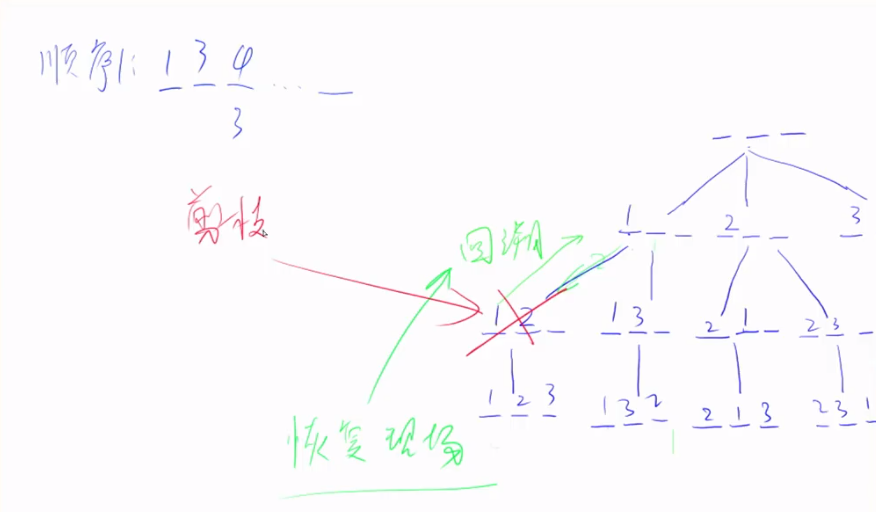 顺序: 1 3 4 ...
3
剪枝
回溯
恢复现场
1 2 3
1 2 1 3 2 1 2 3
1 2 3 1 3 2 2 1 3 2 3 1